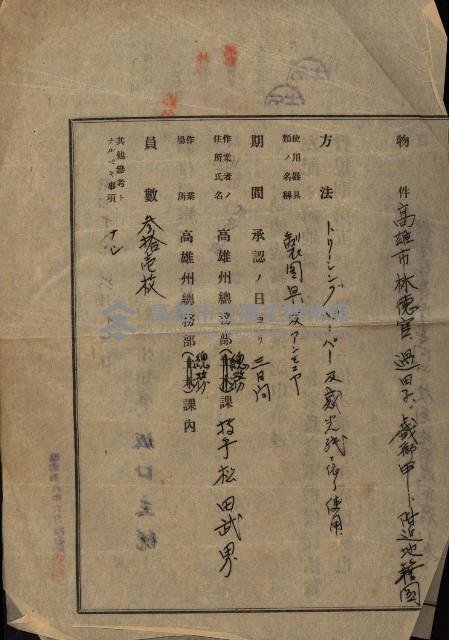 物件 高雄市林德官、過田子、戯獅甲、附近地籍図
方法 トレーシングペーパー及感光紙ヲ使用
使用器具類ノ名稱 製図具及アンモニヤ
期間 承認ノ日ヨリ三日間
作業者ノ住所氏名 高雄州總務部(總務)課 技手 松田武男
作業場所 高雄州總務部(總務)課内
員數 参拾壱枚
其他參考トナルベキ事項 ナシ